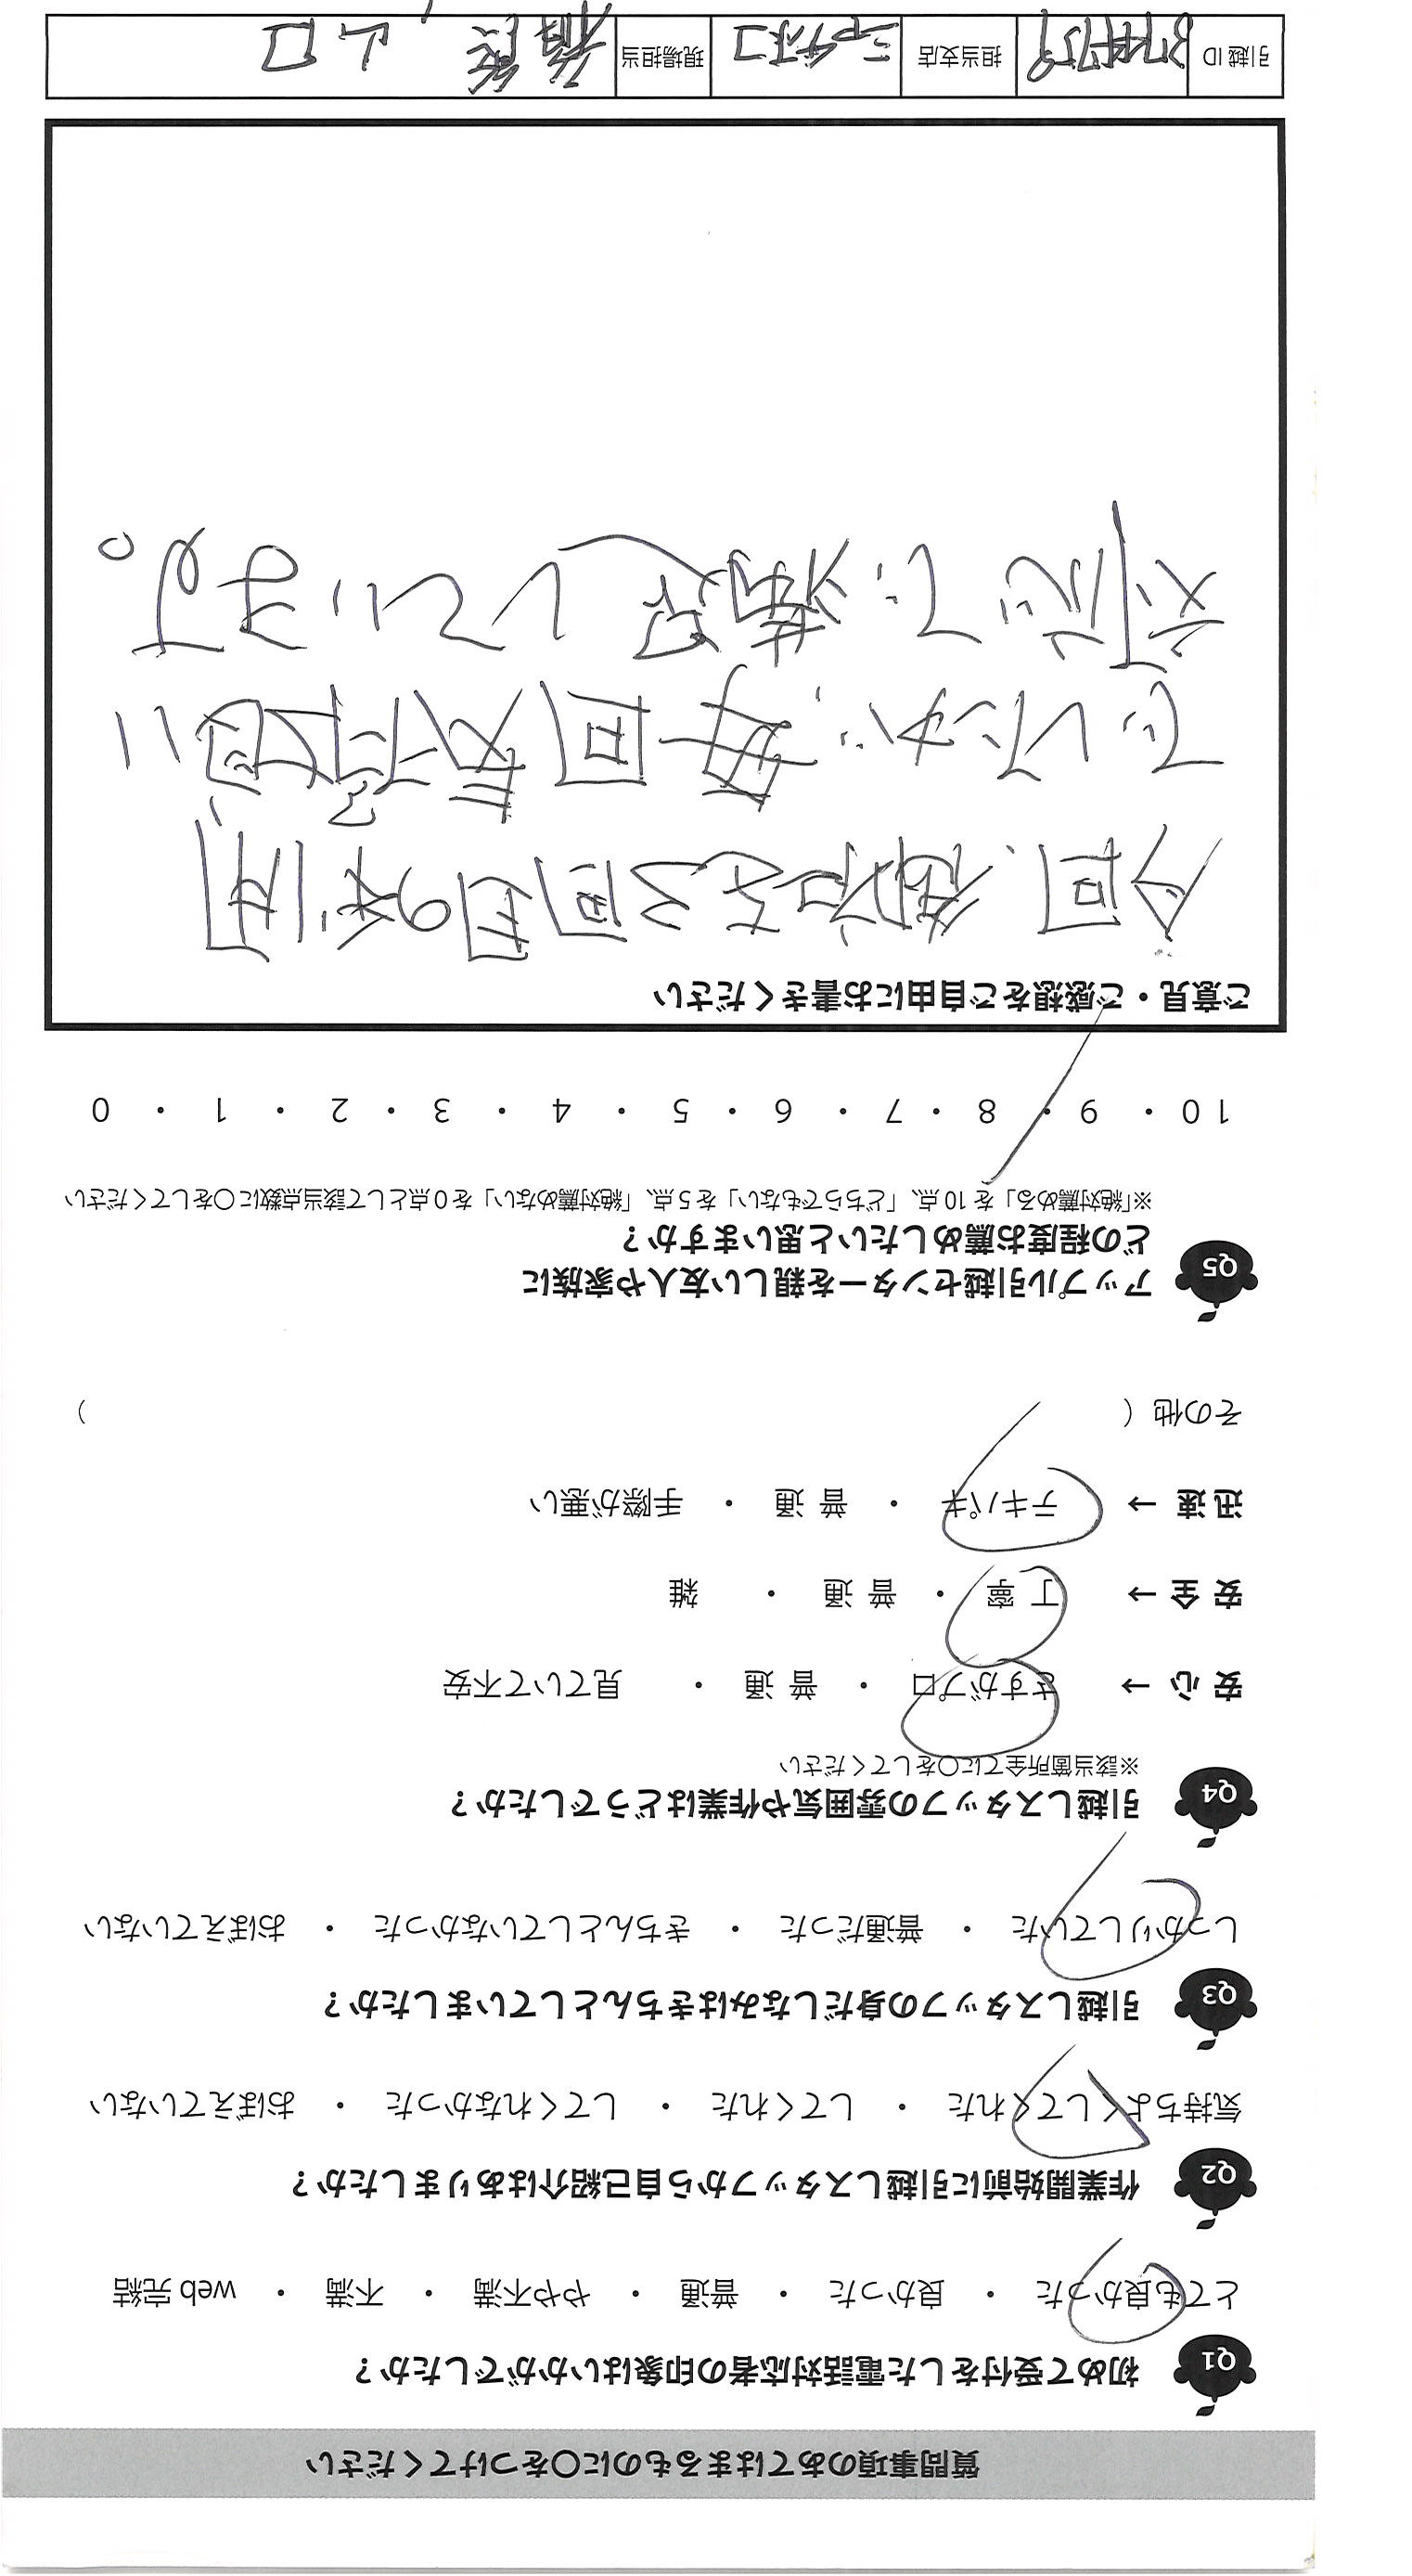 質問事項のあてはまるものに〇をつけてください
Q1 初めて受付をした電話対応者の印象はいかがでしたか？
とても良かった ・ 良かった ・ 普通 ・ やや不満 ・ 不満 ・ web 完結
Q2 作業開始前に引越しスタッフから自己紹介はありましたか？
気持ちよくしてくれた ・ してくれた ・ してくれなかった ・ おぼえていない
Q3 引越しスタッフの身だしなみはきちんとしていましたか？
しっかりしていた ・ 普通だった ・ きちんとしていなかった ・ おぼえていない
Q4 引越しスタッフの雰囲気や作業はどうでしたか？
※該当箇所全てに〇をしてください
安心 → さすがプロ ・ 普通 ・ 見ていて不安
安全 → 丁寧 ・ 普通 ・ 雑
迅速 → テキパキ ・ 普通 ・ 手際が悪い
その他（ ）
Q5 アップル引越センターを親しい友人や家族に
どの程度お薦めしたいと思いますか？
※「絶対薦める」を 10 点、「どちらでもない」を 5 点、「絶対薦めない」を 0 点として該当点数に〇をしてください
10 ・ 9 ・ 8 ・ 7 ・ 6 ・ 5 ・ 4 ・ 3 ・ 2 ・ 1 ・ 0
ご意見・ご感想をご自由にお書きください
今回、御社を3回目の利用
でしたが、毎回気
対応で、満足しています。
引越 ID 担当支店 シャチホコ 現場担当 山口